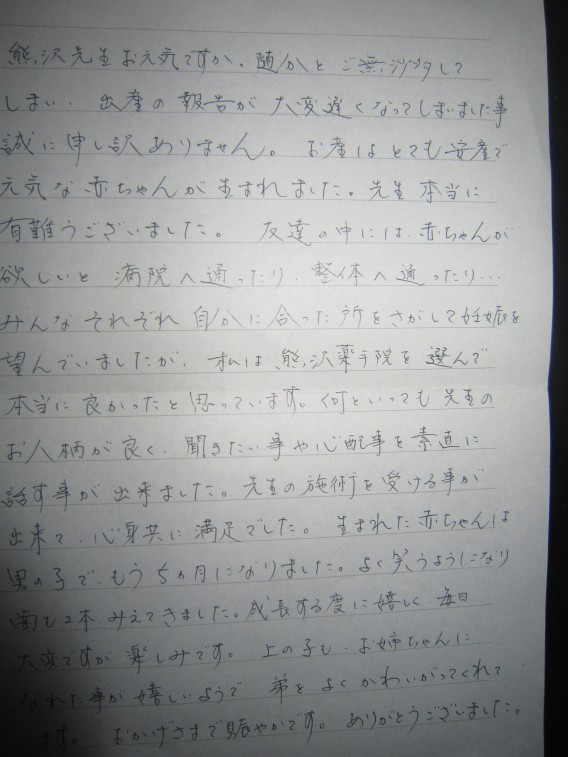 熊沢先生お元気ですか、随分と ご無沙汰して
しまい、出産の報告が大変遅くなってしまいました事
誠に申し訳ありません。 お産はとても安産で
元気な赤ちゃんが生まれました。先生本当に
有難うございました。 友達の中には、赤ちゃんが
欲しいと 病院へ通ったり、整体へ通ったり…
みんなそれぞれ自分に合った所をさがして妊娠を
望んでいましたが、私は熊沢薬手院を選んで
本当に良かったと思っています。何といっても先生の
お人柄が良く、聞きたい事や心配事を素直に
話す事が出来ました。先生の施術を受ける事が
出来て、心身共に満足でした。 生まれた赤ちゃんは
男の子で、もう5ヵ月になりました。よく笑うようになり
歯も2本みえてきました。成長する度に嬉しく、毎日
大変ですが楽しみです。 上の子も、お姉ちゃんに
なれた事が嬉しいようで 弟を よくかわいがってくれて
ます。 おかげさまで賑やかです。ありがとうございました。